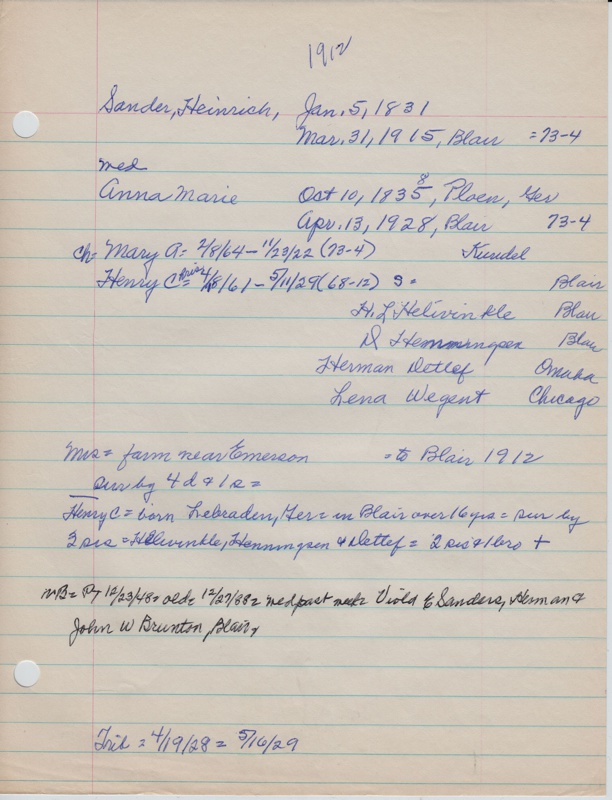 1912
Sander, Heinrich, Jan. 5, 1831
Mar. 31, 1915, Blair = 73-4
med
Anna Marie Oct 10, 1835 8, Ploen, Ger
Apr. 13, 1928, Blair 73-4
ch= Mary A= 2/8/64 – 11/23/22 (73-4) Kundel
Henry C = /8/61 – 5/11/29 (68-12) S = Blair
H. L Helivinkle Blair
D Hemmingsen Blair
Herman Detlef Omaha
Lena Wegent Chicago
Mrs = farm near Emerson = to Blair 1912
sur by 4 d & 1 s =
Henry C = born Lebraden, Ger = in Blair over 16 yrs = sur by
3 sis = Helivinkle, Henningsen & Detlef = 2 sis & 1 bro +
NB = PT 12/23/48 = old = 12/27/88 = med past week Viola E Sanders, Herman &
John W Brunton, Blair,
Trib = 4/19/28 = 5/16/29